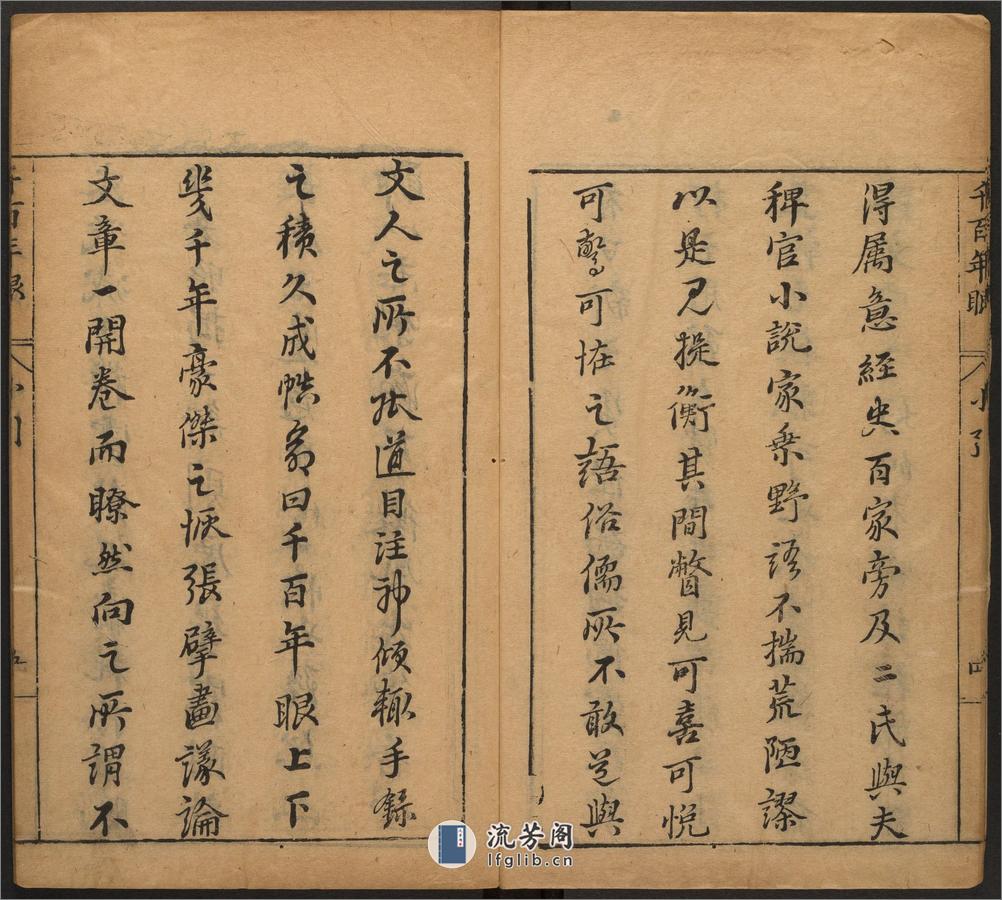 千百年眼
小引
四
得属意經史百家旁及二氏與夫
稗官小說家乗野語不揣荒陋謬
以是見提衡其間瞥見可喜可悅
可驚可恠之語俗儒所不敢道與
文人之所不能道目注神傾輒手錄
之積久成帙命曰千百年眼上下
幾千年豪傑之恢張擘畫議論
文章一開卷而瞭然向之所謂不
千百年眼
小引
五
流芳阁
lfglib.cn